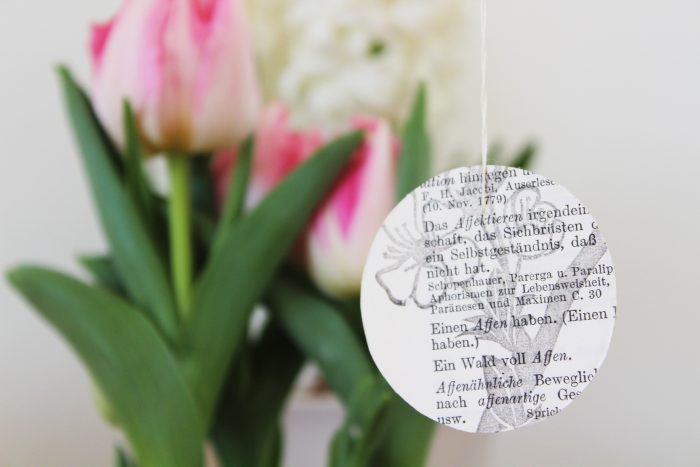 hingegen
F. H. Jacobi, Auserlese
(10. Nov. 1779)
Das Affektieren irgendein
schaft, das Sichbrüsten
ein Selbstgeständnis, daß
nicht hat.
Schopenhauer, Parerga u. Paralip
Aphorismen zur Lebensweisheit,
Paränesen und Maximen C. 30
Einen Affen haben. (Einen
haben.)
Ein Wald voll Affen.
Affenähnliche Beweglic
nach affenartige Ges
usw. Sprich